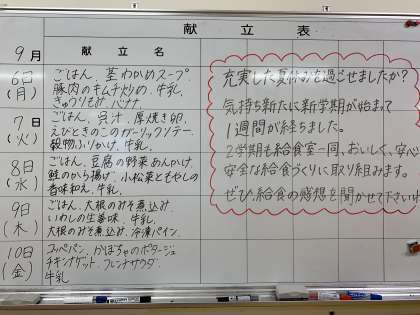 献立表
9月 献立名
6日(月)
ごはん、茎わかめスープ、
豚肉のキムチ炒め、牛乳、
きゅうりもみ、バナナ
7日(火)
ごはん、呉汁、厚焼き卵、
えびときのこのガーリックソテー、
穀物ふりかけ、牛乳
8日(水)
ごはん、豆腐の野菜あんかけ、
鮭のから揚げ、小松菜ともやしの
香味和え、牛乳
9日(木)
ごはん、大根のみそ煮込み、
いわしの生姜味、牛乳、
大根のみそ煮込み、冷凍パイン
10日(金)
コッペパン、かぼちゃのポタージュ
チキンナゲット、フレンチサラダ、
牛乳
充実した夏休みを過ごせましたか?
気持ち新たに新学期が始まって
1週間が経ちました。
2学期も給食室一同、おいしく、安心
安全な給食づくりに取り組みます。
ぜひ給食の感想を聞かせて下さいね